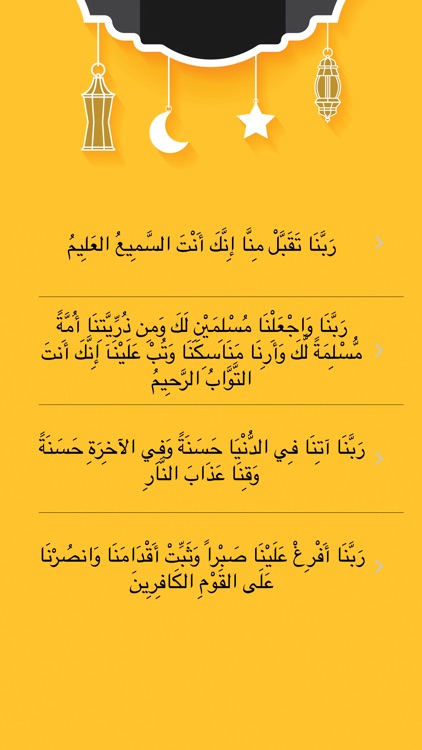 رَبَّنَا تَقَبَّلْ مِنَّا إِنَّكَ أَنْتَ السَّمِيعُ العَلِيمُ
رَبَّنَا وَاجْعَلْنَا مُسْلِمَيْنِ لَكَ وَمِن ذُرِّيَّتِنَا أُمَّةً
مُّسْلِمَةً لَّكَ وَأَرِنَا مَنَاسِكَنَا وَتُبْ عَلَيْنَآ إِنَّكَ أَنتَ
التَّوَّابُ الرَّحِيمُ
رَبَّنَا آتِنَا فِي الدُّنْيَا حَسَنَةً وَفِي الآخِرَةِ حَسَنَةً
وَقِنَا عَذَابَ النَّارِ
رَبَّنَا أَفْرِغْ عَلَيْنَا صَبْراً وَثَبِّتْ أَقْدَامَنَا وَانصُرْنَا
عَلَى القَوْمِ الكَافِرِينَ